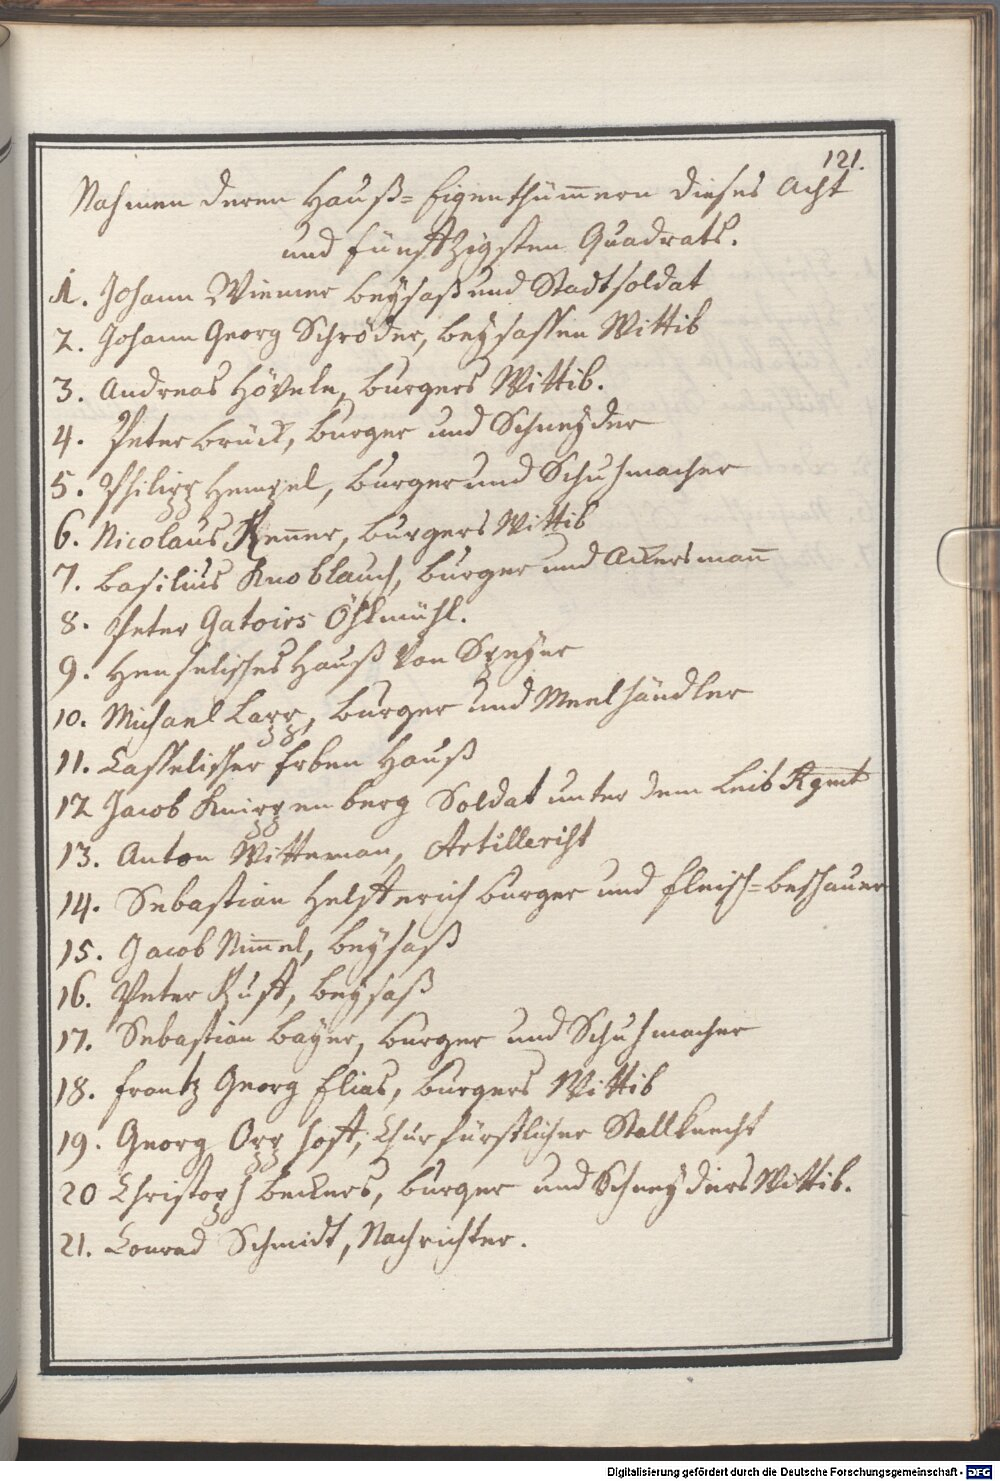 121.
Nahmen deren Hauß= Eigenthüm̅ern dieses Acht
und fünfftzigsten Quadrats.
1. Johann Wiemer beysaß und Stadtsoldat
2. Johann Georg Schröder, beysassen Wittib
3. Andreas Höveln, burgers Wittib.
4. Peter brück, burger und Schneyder
5. Philipp Hempel, burger und Schuhmacher
6. Nicolaus Ren̅er, burgers Wittib
7. basilius Knoblauch, burger und Ackersman̅
8. Peter Gatoirs Öhlmühl.
9. Henselisches Hauß von Speyer
10. Michael Lapp, burger und Meelhändler
11. Casselischer Erben Hauß
12 Jacob Knippenberg Soldat unter dem Leib Rgmt
13. Anton Witteman, Artillerist
14. Sebastian Helfferich burger und fleisch=beschauer
15. Jacob Nim̅el, beysaß
16. Peter Rust, beysaß
17. Sebastian bayer, burger und Schuhmacher
18. frantz Georg Elias, burgers Wittib
19. Georg Opp host, Churfürstlicher Stallknecht
20 Christoph beckers, burger und Schneyders Wittib.
21. Conrad Schmidt, Nachrichter.
Digitalisierung gefördert durch die Deutsche Forschungsgemeinschaft - DFG